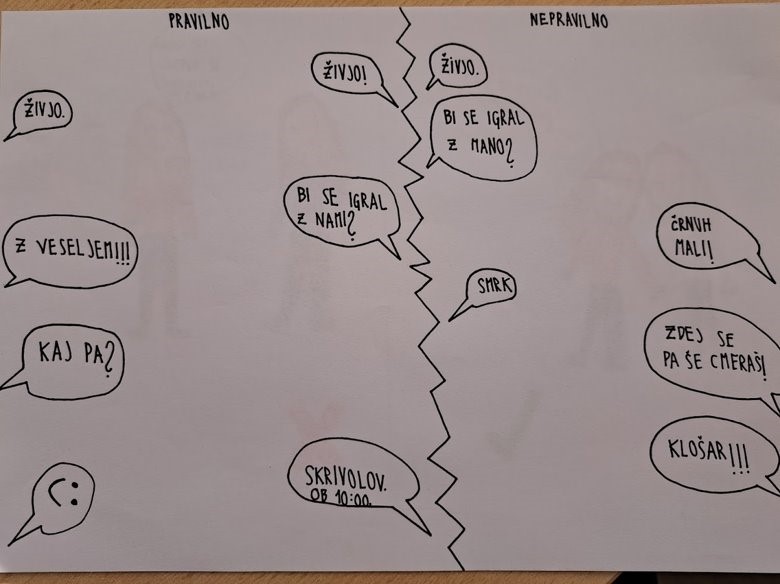 PRAVILNO
ŽIVJO.
ŽIVJO!
BI SE IGRAL
Z NAMI?
Z VESELJEM!!!
KAJ PA?
SKRIVOLOV.
OB 10:00.
NEPRAVILNO
ŽIVJO.
BI SE IGRAL
Z MANO?
ČRNUH
MALI!
SMRK
ZDEJ SE
PA ŠE CMERAŠ!
KLOŠAR!!!